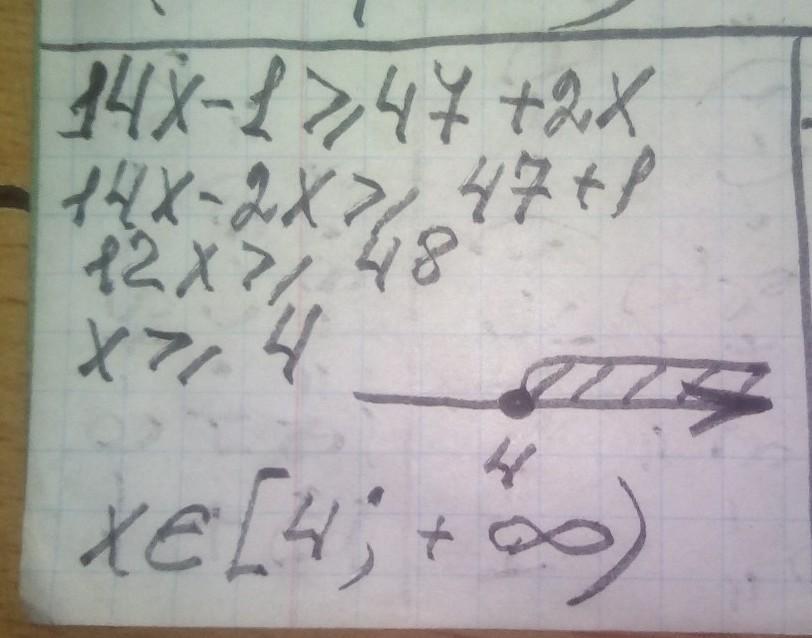 14x-1⩾47+2x
14x-2x⩾47+1
12x⩾48
x⩾4
4
x∈[4;+∞)